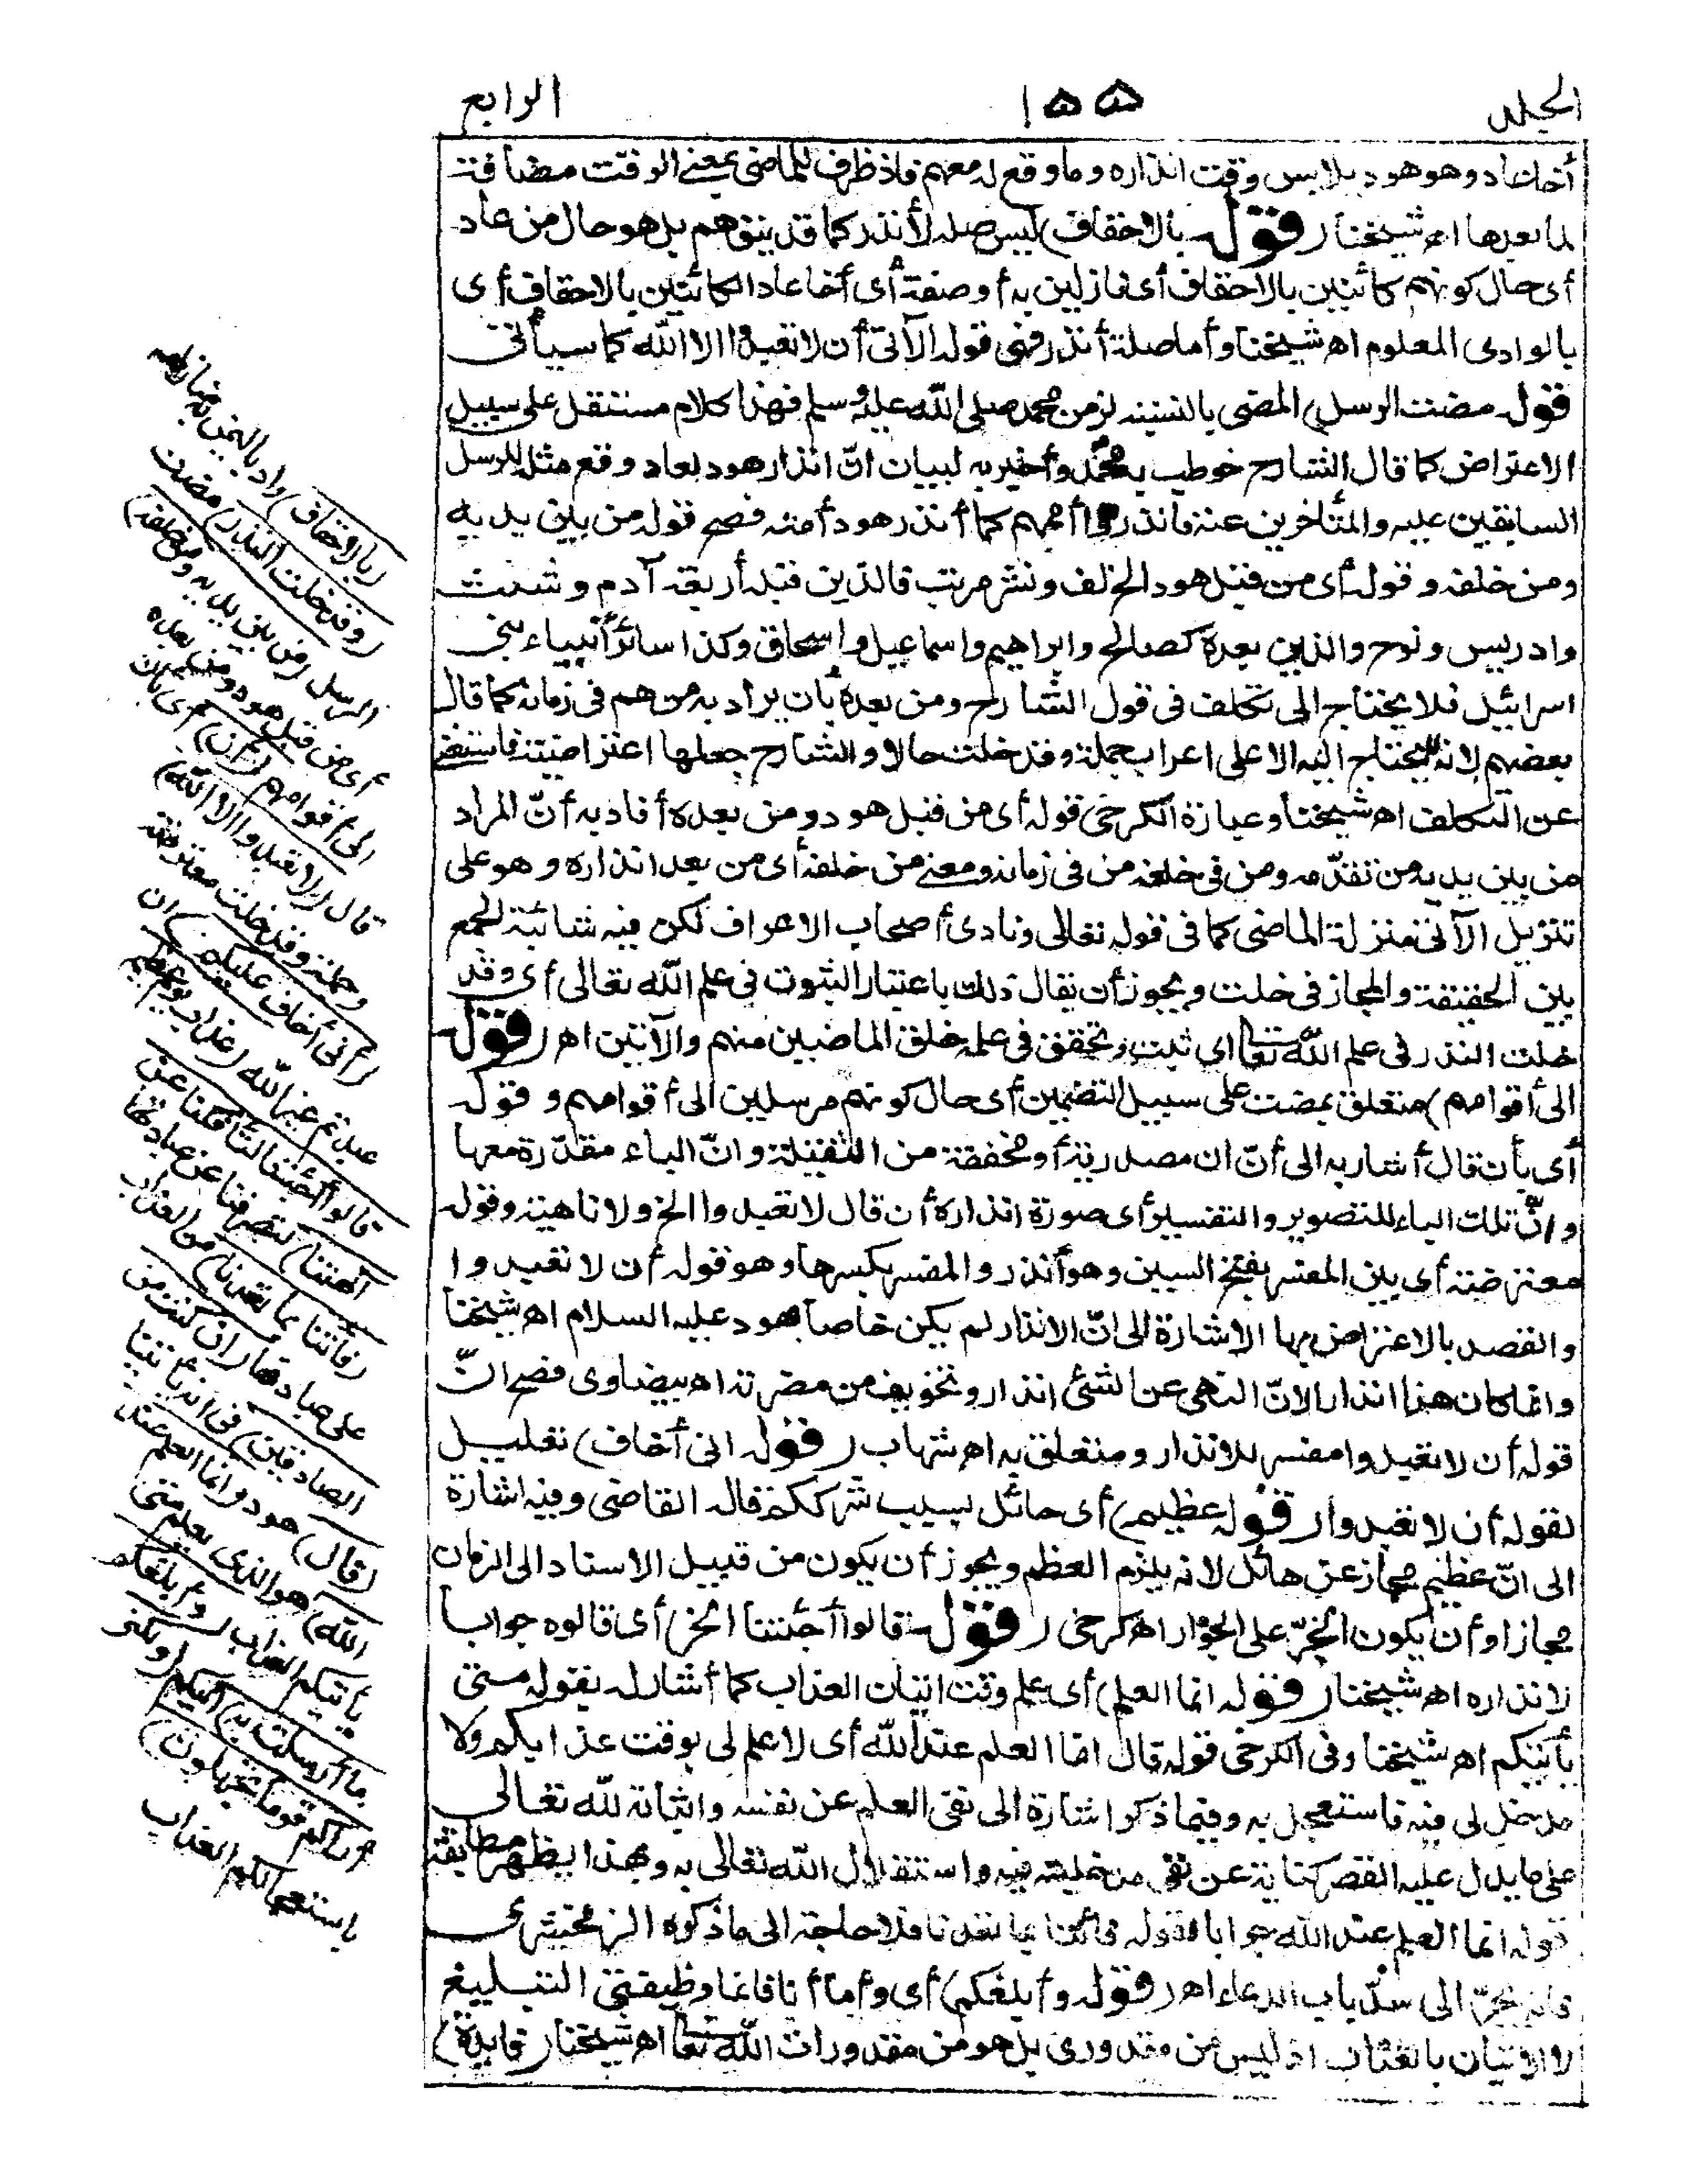 الجلد
١٥٥
الرابع
أخاعاد وهو هود بلابس وقت انذاره وما وقع له معهم فاذ ظرف للماضى بمعنى الوقت مضافة
لما بعدها اه شيخنا (قوله بالاحقاف) ليس صلة لأنذر كما قد يتوهم بل هو حال من عاد
أى حال كونهم كائنين بالاحقاف أى نازلين به أو صفة أى أخا عاد الكائنين بالاحقاف أى
بالوادى المعلوم اه شيخنا وأما صلة أنذر فهى قوله الآتى أن لا تعبدوا الا الله كما سيأتى
قوله مضت الرسل) المضى بالنسبة لزمن محمد صلى الله عليه وسلم فهذا كلام مستقل على سبيل
الاعتراض كما قال الشارح خوطب به محمد وأخبر به لبيان انّ انذار هود لعاد وقع مثله للرسل
السابقين عليه والمتأخرين عنه فانذروا أممهم كما أنذر هود أمته فصح قوله من بين يديه
ومن خلفه وقوله أى من قبل هود الخ لف ونشر مرتب فالذين قبله أربعة آدم وشيث
وادريس ونوح والذين بعده كصالح وابراهيم واسماعيل واسحاق وكذا سائر أنبياء بنى
اسرائيل فلا يحتاج الى تكلف فى قول الشارح ومن بعده بأن يراد به من هم فى زمانه كما قال
بعضهم لانه لا يحتاج اليه الا على اعراب جملة وقد خلت حالا والشارح جعلها اعتراضية فاستغنى
عن التكلف اه شيخنا وعبارة الكرخى قوله أى من قبل هود ومن بعده أفاد به أنّ المراد
من بين يديه من تقدّمه ومن فى خلفه من فى زمانه ومعنى من خلفه أى من بعد انذاره وهو على
تنزيل الآتى منزلة الماضى كما فى قوله تعالى ونادى أصحاب الاعراف لكن فيه شائبة الجمع
بين الحقيقة والمجاز فى خلت ويجوز أن يقال ذلك باعتبار الثبوت فى علم الله تعالى أى وقد
خلت النذر فى علم الله تعالى اى ثبت وتحقق فى علمه خلق الماضين منهم والآتين اه (قوله
الى أقوامهم) متعلق بمضت على سبيل التضمين أى حال كونهم مرسلين الى أقوامهم وقوله
أى بأن قال أشار به الى أنّ ان مصدرية أو مخففة من الثقيلة وانّ الباء مقدّرة معها
وانّ تلك الباء للتصوير والتفسير أى صورة انذاره أن قال لا تعبدوا الخ ولا ناهية وقوله
معترضة أى بين المفسر بفتح السين وهو أنذر والمفسر بكسرها وهو قوله أن لا تعبدوا
والقصد بالاعتراض بها الاشارة الى انّ الانذار لم يكن خاصا بهود عليه السلام اه شيخنا
وانما كان هذا انذارا لانّ النهى عن الشئ انذار وتخويف من مضرته اه بيضاوى فصح انّ
قوله أن لا تعبدوا مفسر للانذار ومتعلق به اه شهاب (قوله انى أخاف) تعليل
لقوله أن لا تعبدوا (قوله عظيم) أى هائل بسبب شرككم قاله القاضى وفيه اشارة
الى انّ عظيم مجاز عن هائل لانه يلزم العظم ويجوز أن يكون من قبيل الاسناد الى الزمان
مجازا وأن يكون الجرّ على الجوار اه كرخى (قوله قالوا أجئتنا الخ) أى قالوه جوابا
لانذاره اه شيخنا (قوله انما العلم) أى علم وقت اتيان العذاب كما أشار له بقوله متى
يأتيكم اه شيخنا وفى الكرخى قوله قال انما العلم عند الله أى لا علم لى بوقت عذابكم ولا
مدخل لى فيه فاستعجل به وفيما ذكر اشارة الى نفى العلم عن نفسه واثباته لله تعالى
على ما يدل عليه القصر كناية عن نفى مدخليته فيه واستقلال الله تعالى به وبهذا يظهر مطابقة
قوله انما العلم عند الله جوابا لقوله فأتنا بما تعدنا فلا حاجة الى ما ذكره الزمخشرى
فانه يجرّ الى سدّ باب الدعاء اه (قوله وأبلغكم) أى وأما أنا فانما وظيفتى التبليغ
لا الاتيان بالعذاب اذ ليس من مقدورى بل هو من مقدورات الله تعالى اه شيخنا (فابدة)
(بالاحقاف) واد باليمن به منازلهم
(وقد خلت النذر) مضت
الرسل (من بين يديه ومن خلفه)
أى من قبل هود ومن بعده
الى أقوامهم (أن) أى بأن
قال (لا تعبدوا الا الله)
وجملة وقد خلت معترضة
(انى أخاف عليكم) ان
عبدتم غير الله (عذاب يوم عظيم
قالوا أجئتنا لتأفكنا عن
آلهتنا) لتصرفنا عن عبادتها
(فأتنا بما تعدنا) من العذاب
على عبادتها (ان كنت من
الصادقين) فى انه يأتينا
(قال) هود (انما العلم عند
الله) هو الذى يعلم متى
يأتيكم العذاب (وأبلغكم
ما أرسلت به) اليكم (ولكنى
أراكم قوما تجهلون)
باستعجالكم العذاب